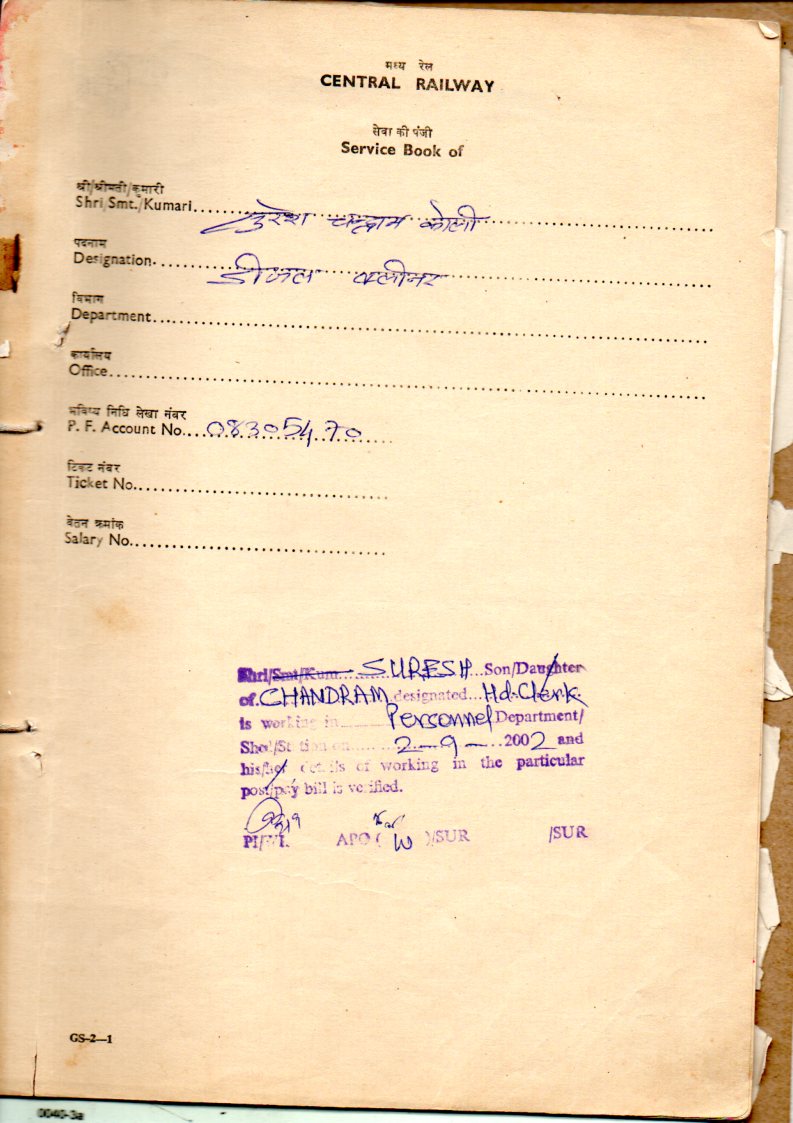 मध्य रेल
CENTRAL RAILWAY
सेवा की पंजी
Service Book of
श्री/श्रीमती/कुमारी
Shri/Smt./Kumari.......... सुरेश चन्द्राम कोली
पदनाम
Designation.......... डीजल क्लीनर
विभाग
Department..........
कार्यालय
Office..........
भविष्य निधि लेखा नंबर
P. F. Account No... 08305470
टिकट नंबर
Ticket No..........
वेतन क्रमांक
Salary No..........
Shri/Smt/Kum....SURESH...Son/Daughter
of CHANDRAM designated...Hd.Clerk
is working in Personnel Department/
Shed/Station on......2-9-..2002 and
his/her details of working in the particular
post/pay bill is verified.
PI/WI. APO (W)/SUR /SUR
GS-2—1
0040-3a